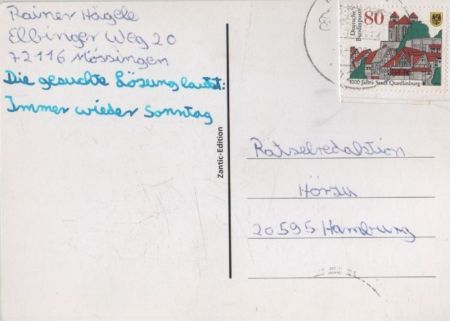 Rainer Hägele
Elbinger Weg 20
72116 Mössingen
Die gesuchte Lösung lautet:
Immer wieder Sonntag
Zantic-Edition
Deutsche Bundespost
80
1000 Jahre Stadt Quedlinburg
Rätselredaktion
Hörzu
20595 Hamburg